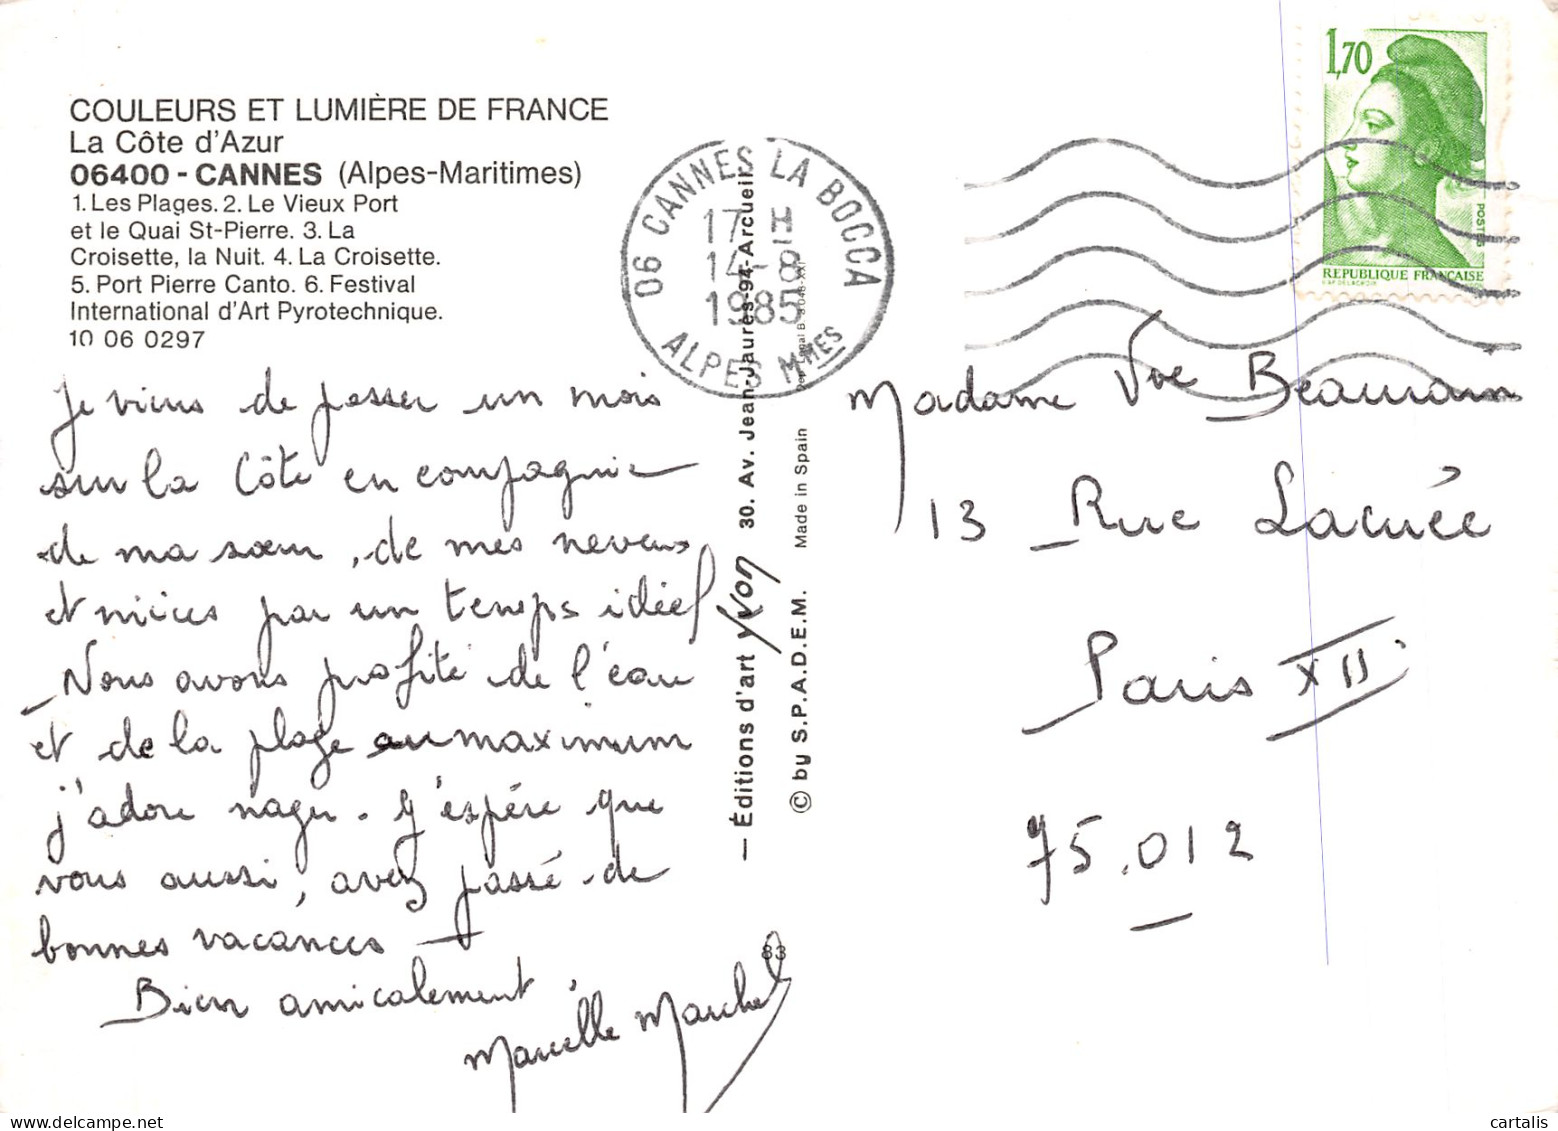 COULEURS ET LUMIÈRE DE FRANCE
La Côte d'Azur
06400 - CANNES (Alpes-Maritimes)
1. Les Plages. 2. Le Vieux Port
et le Quai St-Pierre. 3. La
Croisette, la Nuit. 4. La Croisette.
5. Port Pierre Canto. 6. Festival
International d'Art Pyrotechnique.
10 06 0297
Je viens de passer un mois
sur la Côte en compagnie
de ma sœur, de mes neveux
et nièces par un temps idéal
Nous avons profité de l'eau
et de la plage au maximum
j'adore nager. J'espère que
vous aussi, avez passé de
bonnes vacances
Bien amicalement.
Marcelle Marchal
06 CANNES LA BOCCA
17 H
14-8
1985
ALPES MMES
— Éditions d'art YVON 30. Av. Jean-Jaurès-94-Arcueil
© by S.P.A.D.E.M. Made in Spain
83
1,70
POSTES
RÉPUBLIQUE FRANÇAISE
Madame Vve
13 Rue Lacuée
Paris XII
75.012
cartalis